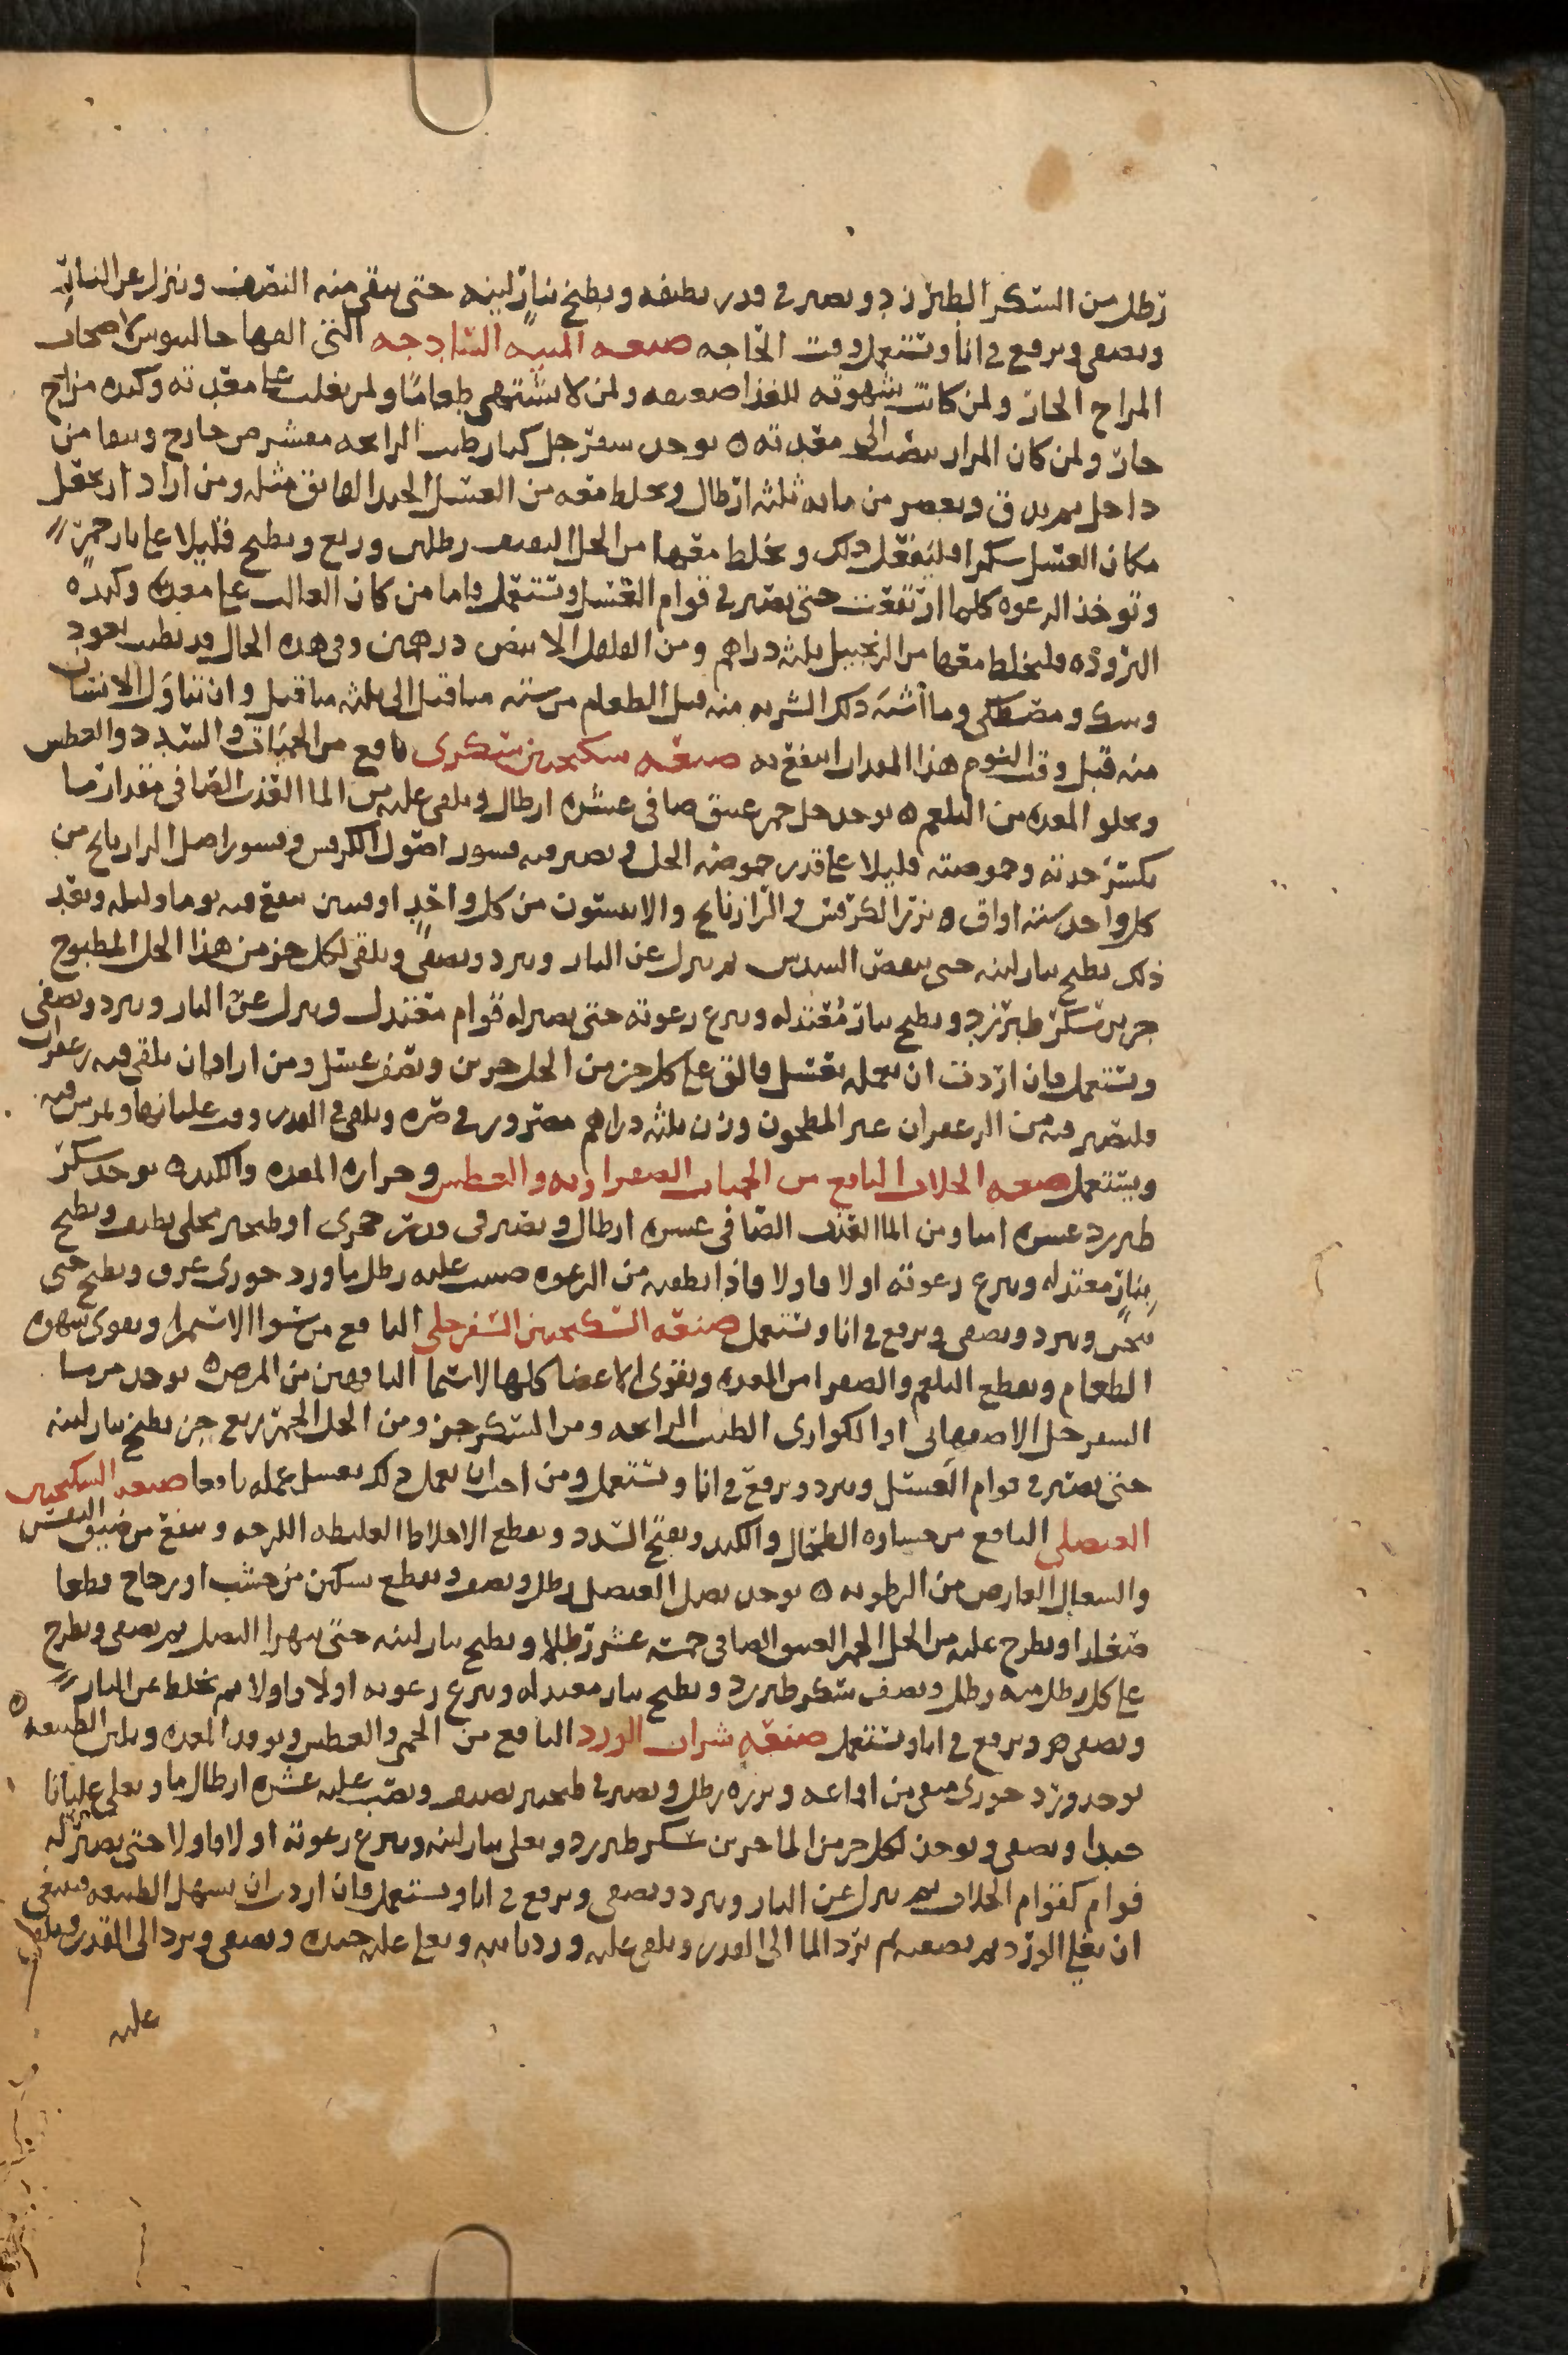 رطل من السكر الطبرزد ويصير في قدر نظيفه ويطبخ بنار لينه حتى يبقى منه النصف وينزل عن النار
ويصفى ويرفع في انا وتستعمل وقت الحاجه صنعه الميبه الساذجه التي الفها جالينوس لاصحاب
المزاج الحار ولمن كانت شهوته للغذا ضعيفه ولمن لا يشتهي طعاما ولمن يغلب على معدته وكبده مزاج
حار ولمن كان المرار ينصب الى معدته ه يوخذ سفرجل كبار طيب الرايحه مقشر من خارج وينقا من
داخل ثم يدق ويعصر من مايه ثلثه ارطال ويخلط معه من العسل الجيد الفايق مثله ومن اراد ان يجعل
مكان العسل سكرا فليفعل ذلك ويخلط معهما من الخل الثقيف رطلين وربع ويطبخ قليلا على نار جمر
وتوخذ الرغوه كلما ارتفعت حتى يصير في قوام العسل وتستعمل فاما من كان الغالب على معدته وكبده
البروده فليخلط معها من الزنجبيل ثلثه دراهم ومن الفلفل الابيض درهمين وفي هذه الحال قد يطيب بعود
وسك ومصطكى وما اشبه ذلك الشربه منه قبل الطعام من سته مثاقيل الى ثلثه مثاقيل وان تناول الانسان
منه قبل وقت النوم هذا المقدار انتفع به صنعه سكنجبين سكري نافع من الحميات والسدد والعطش
ويجلو المعده من البلغم ه يوخذ خل خمر عتيق صافي عشره ارطال ويلقى عليه من الما العذب الصافي مقدار ما
يكسر حدته وحموضته قليلا على قدر حموضه الخل ويصير فيه قشور اصول الكرفس وقشور اصل الرازيانج من
كل واحد سته اواق ه بزر الكرفس والرازيانج والانيسون من كل واحد اوقيتين ينقع فيه يوما وليله وبعد
ذلك يطبخ بنار لينه حتى ينقص السدس ثم ينزل عن النار ويبرد ويصفى ويلقى لكل جز من هذا الخل المطبوخ
جزين سكر طبرزد ويطبخ بنار معتدله وينزع رغوته حتى يصير له قوام معتدل وينزل عن النار ويبرد ويصفى
ويستعمل فان اردت ان تعمله بعسل فالق على كل جز من الخل جزين ونصف عسل ومن اراد ان يلقي فيه زعفران
فليصير فيه من الزعفران غير المطحون وزن ثلثه دراهم مصرور في صره ويلقى في القدر وقت غليانها ويمرس فيه
ويستعمل صنعه الجلاب النافع من الحميات الصفراويه والعطش وحراره المعده والكبد ه يوخذ سكر
طبرزد عشره امنا ومن الما العذب الصافي عشره ارطال ويصير في قدر حجري او طنجير محلى نظيف ويطبخ
بنار معتدله وينزع رغوته اولا فاولا فاذا نظفته من الرغوه صببت عليه رطل ماورد جوري عرق ويطبخ حتى
يثخن ويبرد ويصفى ويرفع في انا وتستعمل صنعه السكنجبين السفرجلي النافع من سوا الاستمرا ويقوي شهوه
الطعام ويقطع البلغم والصفرا من المعده ويقوي الاعضا كلها لاسيما الناقهين من المرض ه يوخذ من ما
السفرجل الاصفهاني او الكواري الطيب الرايحه ومن السكر جز ومن الخل الخمر ربع جز يطبخ بنار لينه
حتى يصير في قوام العسل ويبرد ويرفع في انا وتستعمل ومن احب ان يعمل ذلك بعسل عمله نافعا صنعه السكنجبين
العنصلي النافع من جساوه الطحال والكبد ويفتح السدد ويقطع الاخلاط الغليظه اللزجه وينفع من ضيق النفس
والسعال العارض من الرطوبه ه يوخذ بصل العنصل رطل ونصف ويقطع بسكين من خشب او زجاج قطعا
صغارا ويطرح عليه من الخل الخمر العتيق الصافي خمسه عشر رطلا ويطبخ بنار لينه حتى يتهرا البصل ثم يصفى ويطرح
على كل رطل منه رطل ونصف سكر طبرزد ويطبخ بنار معتدله وينزع رغوته اولا فاولا ثم يحط عن النار
ويصفى ويرفع في انا وتستعمل صنعه شراب الورد النافع من الحمى والعطش وتوقد المعده ويلين الطبيعه ه
يوخذ ورد جوري منقى من اقماعه وبزره رطل ويصير في طنجير نظيف ويصب عليه عشره ارطال ما ويغلى غليانا
جيدا ويصفى ويوخذ لكل جز من الما جزين سكر طبرزد ويغلى بنار لينه وينزع رغوته اولا فاولا حتى يصير له
قوام كقوام الجلاب ثم ينزل عن النار ويبرد ويصفى ويرفع في انا ويستعمل فان اردت ان يسهل الطبيعه فينبغي
ان يغلي الورد ثم يصفيه ثم يرد الما الى القدر ويلقى عليه ورد ثانيه ويغلى غليه جيده ويصفى ويرد الى القدر ويلقى
عليه